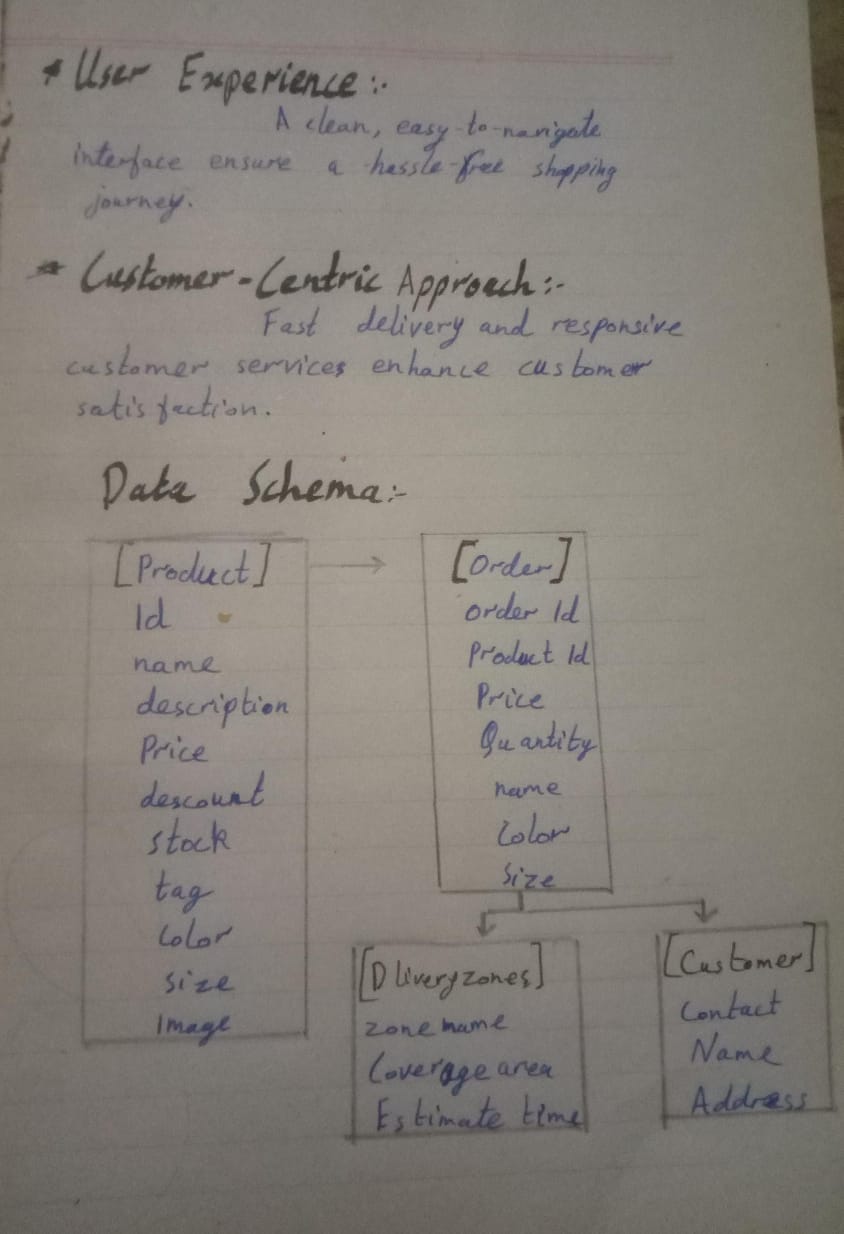 * User Experience:-
A clean, easy-to-navigate
interface ensure a hassle-free shopping
journey.
* Customer-Centric Approach:-
Fast delivery and responsive
customer services enhance customer
satisfaction.
Data Schema:-
[Product]
Id
name
description
Price
descount
stock
tag
Color
size
Image
[Order]
order Id
Product Id
Price
Quantity
name
Color
Size
[Dliveryzones]
zone name
Coverage area
Estimate time
[Customer]
Contact
Name
Address